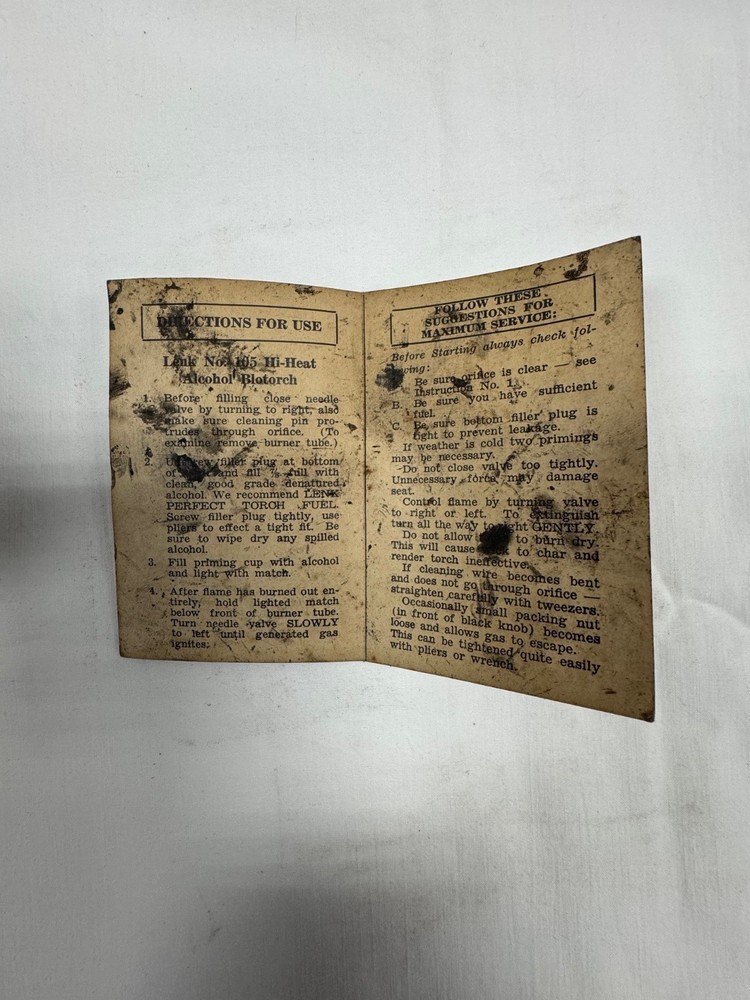 DIRECTIONS FOR USE
Lenk No. 105 Hi-Heat
Alcohol Blotorch
1. Before filling close needle
valve by turning to right, also
make sure cleaning pin pro-
trudes through orifice. (To
examine remove burner tube.)
2. Unscrew filler plug at bottom
of and fill ⅞ full with
clean, good grade denatured
alcohol. We recommend LENK
PERFECT TORCH FUEL.
Screw filler plug tightly, use
pliers to effect a tight fit. Be
sure to wipe dry any spilled
alcohol.
3. Fill priming cup with alcohol
and light with match.
4. After flame has burned out en-
tirely, hold lighted match
below front of burner tube.
Turn needle valve SLOWLY
to left until generated gas
ignites.
FOLLOW THESE
SUGGESTIONS FOR
MAXIMUM SERVICE:
Before Starting always check fol-
lowing:
Be sure orifice is clear — see
Instruction No. 1.
B. Be sure you have sufficient
fuel.
C. Be sure bottom filler plug is
tight to prevent leakage.
If weather is cold two primings
may be necessary.
Do not close valve too tightly.
Unnecessary force may damage
seat.
Control flame by turning valve
to right or left. To extinguish
turn all the way to right GENTLY.
Do not allow to burn dry.
This will cause to char and
render torch ineffective.
If cleaning wire becomes bent
and does not go through orifice —
straighten carefully with tweezers.
Occasionally small packing nut
(in front of black knob) becomes
loose and allows gas to escape.
This can be tightened quite easily
with pliers or wrench.